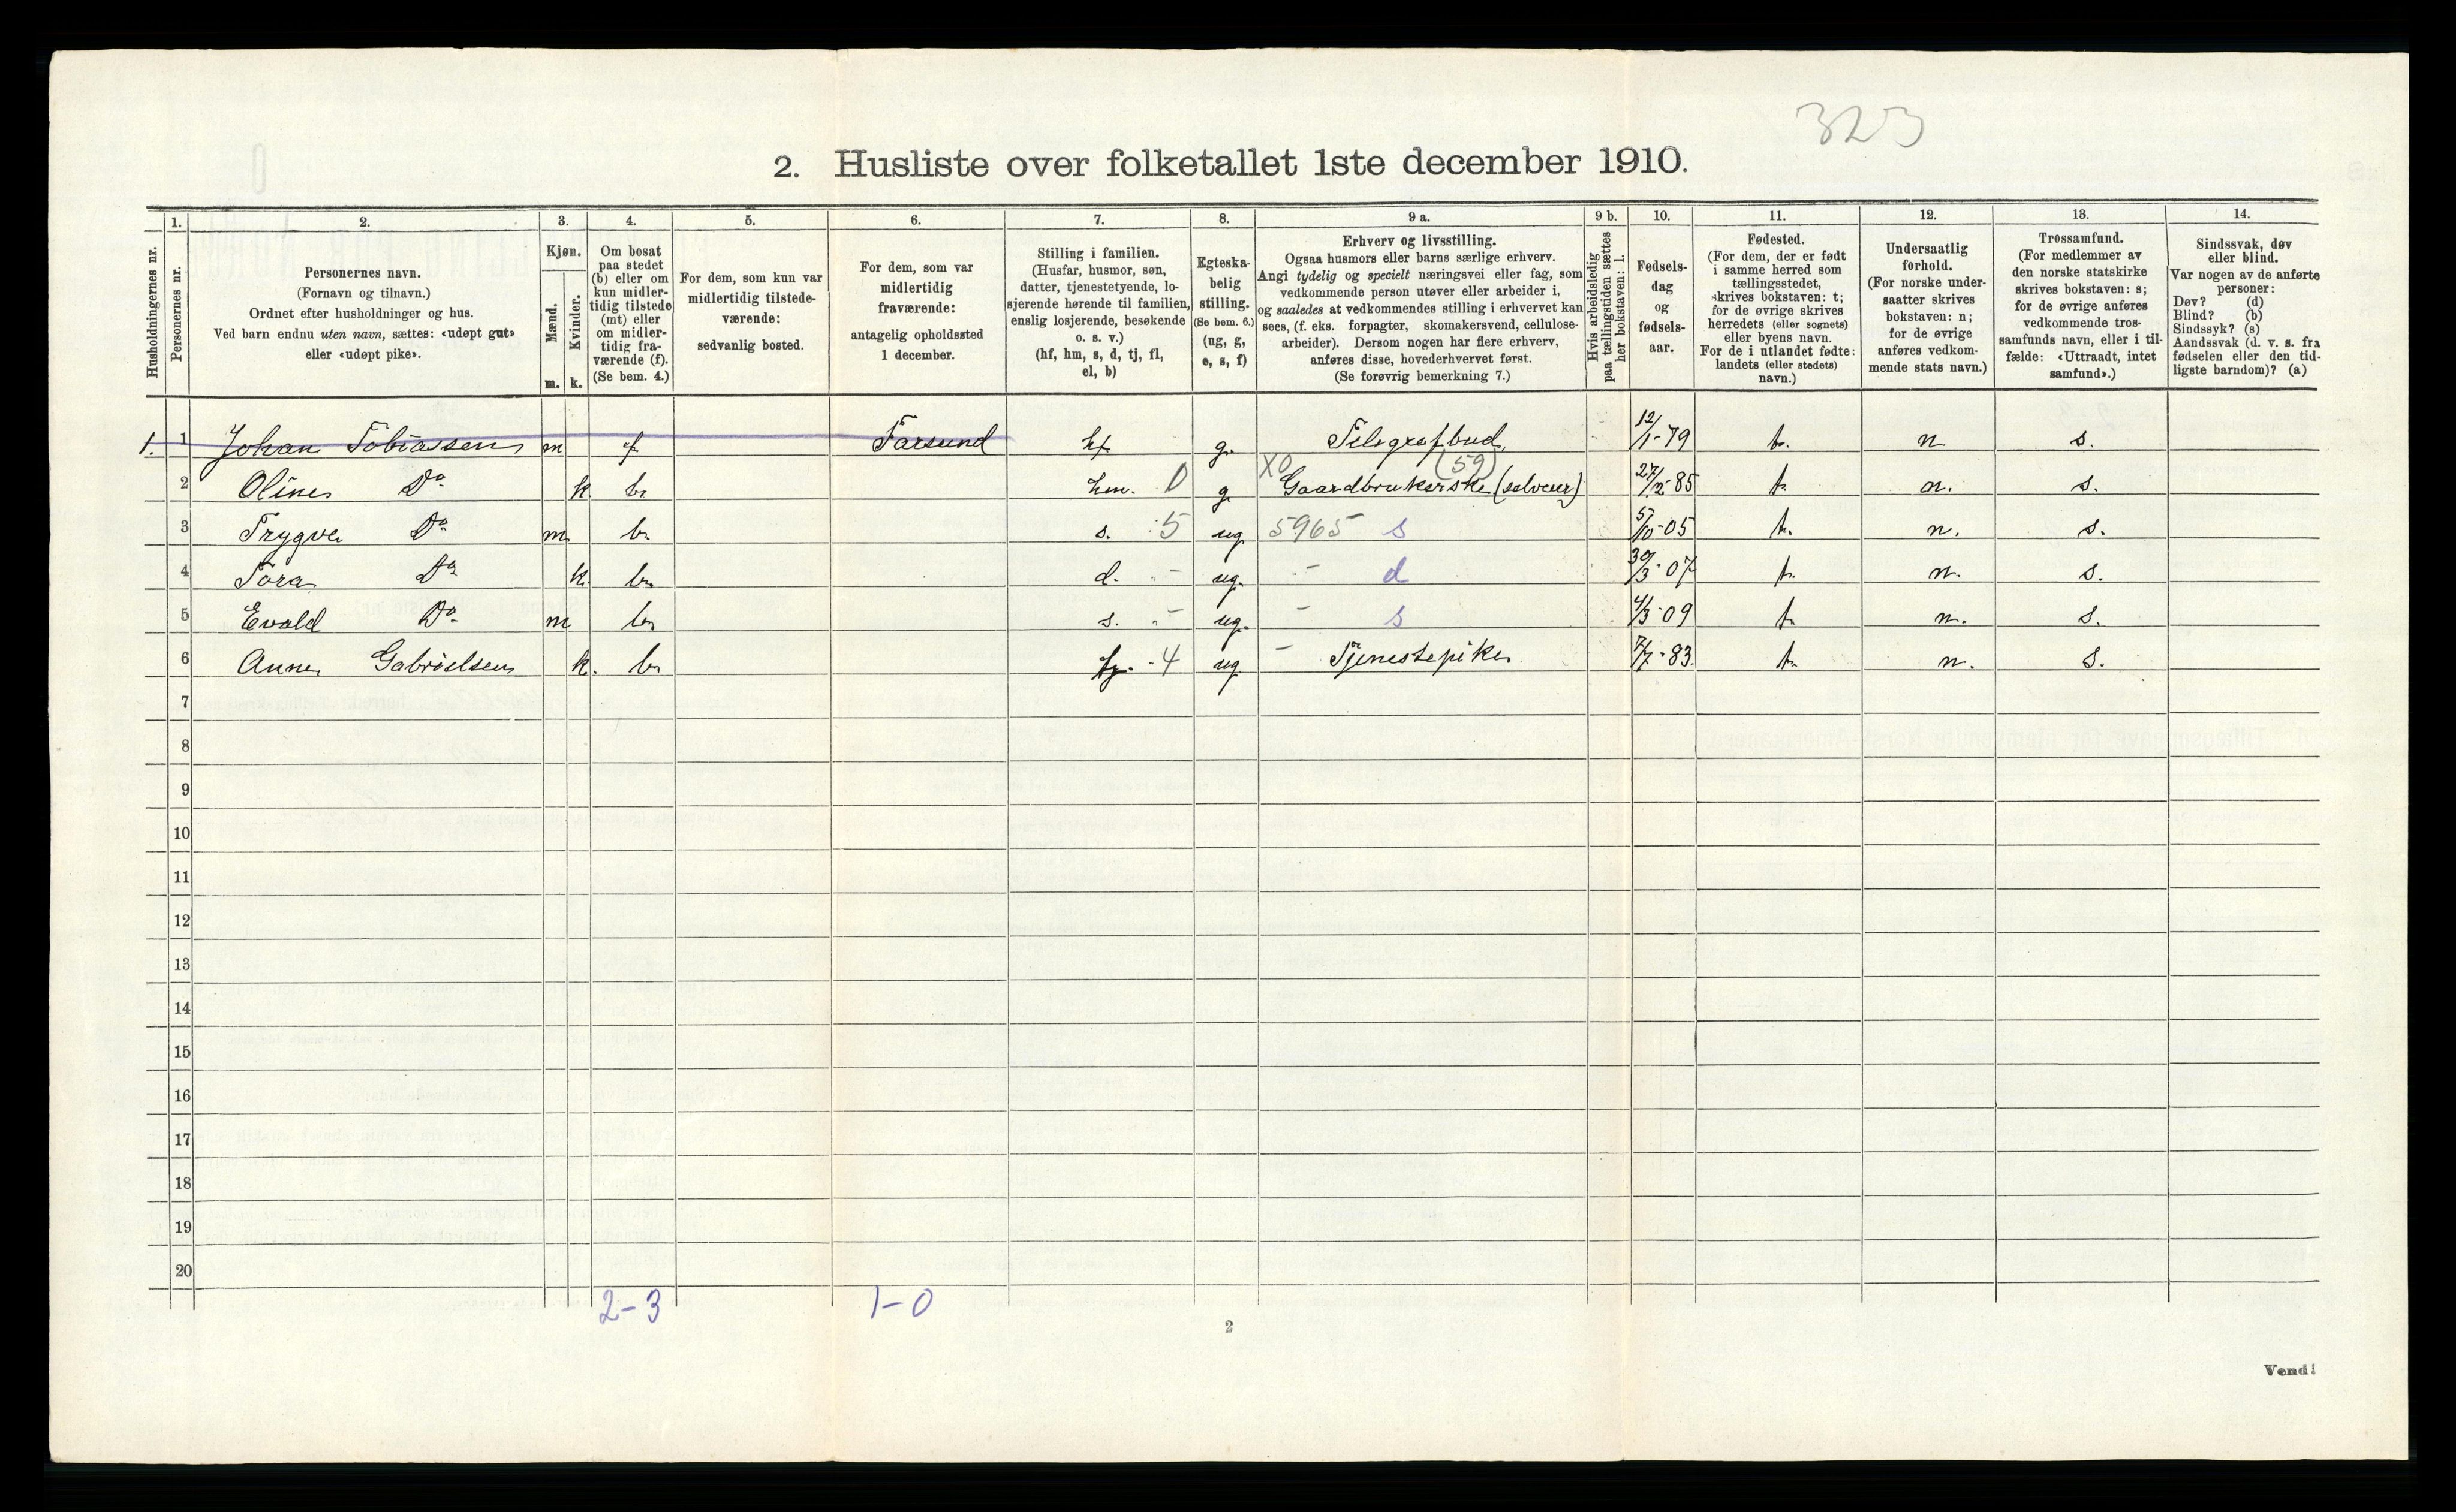 323
2. Husliste over folketallet 1ste december 1910.
1. 2. 3. 4. 5. 6. 7. 8. 9 a. 9 b. 10. 11. 12. 13. 14.
Husholdningernes nr.
Personernes nr.
Personernes navn.
(Fornavn og tilnavn.)
Ordnet efter husholdninger og hus.
Ved barn endnu uten navn, sættes: «udøpt gut»
eller «udøpt pike».
Kjøn.
Mænd.
Kvinder.
m. k.
Om bosat
paa stedet
(b) eller om
kun midler-
tidig tilstede
(mt) eller
om midler-
tidig fra-
værende (f).
(Se bem. 4.)
For dem, som kun var
midlertidig tilstede-
værende:
sedvanlig bosted.
For dem, som var
midlertidig
fraværende:
antagelig opholdssted
1 december.
Stilling i familien.
(Husfar, husmor, søn,
datter, tjenestetyende, lo-
sjerende hørende til familien,
enslig losjerende, besøkende
o. s. v.)
(hf, hm, s, d, tj, fl,
el, b)
Egteska-
belig
stilling.
(Se bem. 6.)
(ug, g,
e, s, f)
Erhverv og livsstilling.
Ogsaa husmors eller barns særlige erhverv.
Angi tydelig og specielt næringsvei eller fag, som
vedkommende person utøver eller arbeider i,
og saaledes at vedkommendes stilling i erhvervet kan
sees, (f. eks. forpagter, skomakersvend, cellulose-
arbeider). Dersom nogen har flere erhverv,
anføres disse, hovederhvervet først.
(Se forøvrig bemerkning 7.)
Hvis arbeidsledig
paa tællingstiden sættes
her bokstaven: l.
Fødsels-
dag
og
fødsels-
aar.
Fødested.
(For dem, der er født
i samme herred som
tællingsstedet,
skrives bokstaven: t;
for de øvrige skrives
herredets (eller sognets)
eller byens navn.
For de i utlandet fødte:
landets (eller stedets)
navn.)
Undersaatlig
forhold.
(For norske under-
saatter skrives
bokstaven: n;
for de øvrige
anføres vedkom-
mende stats navn.)
Trossamfund.
(For medlemmer av
den norske statskirke
skrives bokstaven: s;
for de øvrige anføres
vedkommende tros-
samfunds navn, eller i til-
fælde: «Uttraadt, intet
samfund».)
Sindssvak, døv
eller blind.
Var nogen av de anførte
personer:
Døv? (d)
Blind? (b)
Sindssyk? (s)
Aandssvak (d. v. s. fra
fødselen eller den tid-
ligste barndom)? (a)
1. 1 Johan Tobiassen m f Farsund hf g. Telegrafbud 12/1-79 t. n. s.
2 Oline Do k b. hm. 0 g X0 Gaardbrukerske (selveier) (59) 27/2-85 t. n. s.
3 Trygve Do m b. s. 5 ug 5965 s 5/10-05 t. n. s.
4 Tora Do k. b. d. - ug. - d 30/3-07 t. n. s.
5 Evald Do m b. s. - ug. - s 4/3-09 t. n. s.
6 Anne Gabrielsen k. b. tj. 4 ug - Tjenestepike 7/7-83. t. n. s.
7
8
9
10
11
12
13
14
15
16
17
18
19
20
2-3 1-0
2
Vend!